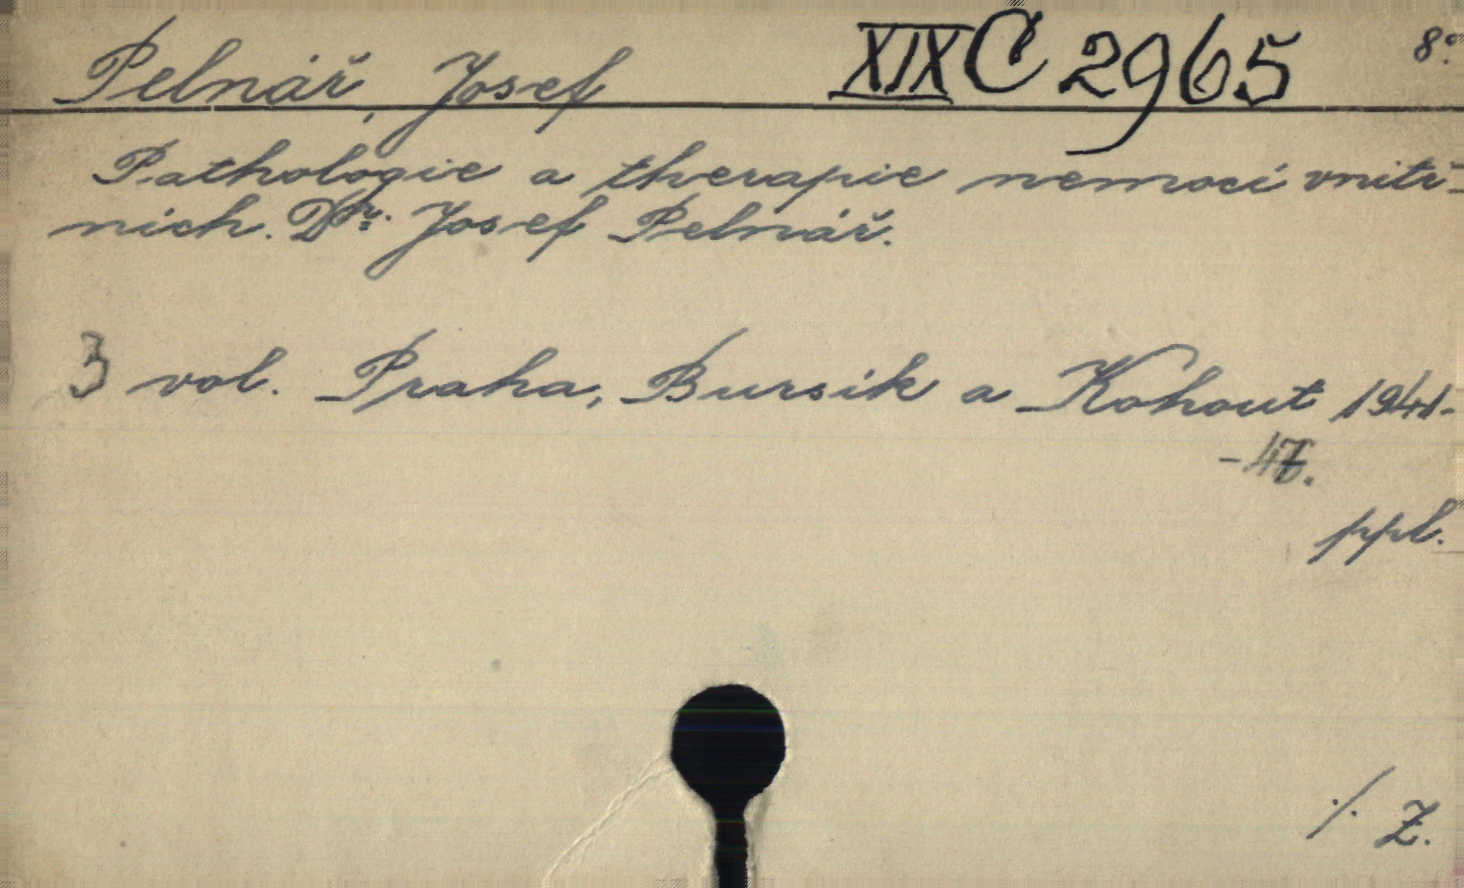 Pelnář, Josef XIX C 2965 8°.
Pathologie a therapie nemocí vnitř-
ních. Dr. Josef Pelnář.
3 vol. Praha, Bursík a Kohout 1941-
-47.
ppl.
./. Z.